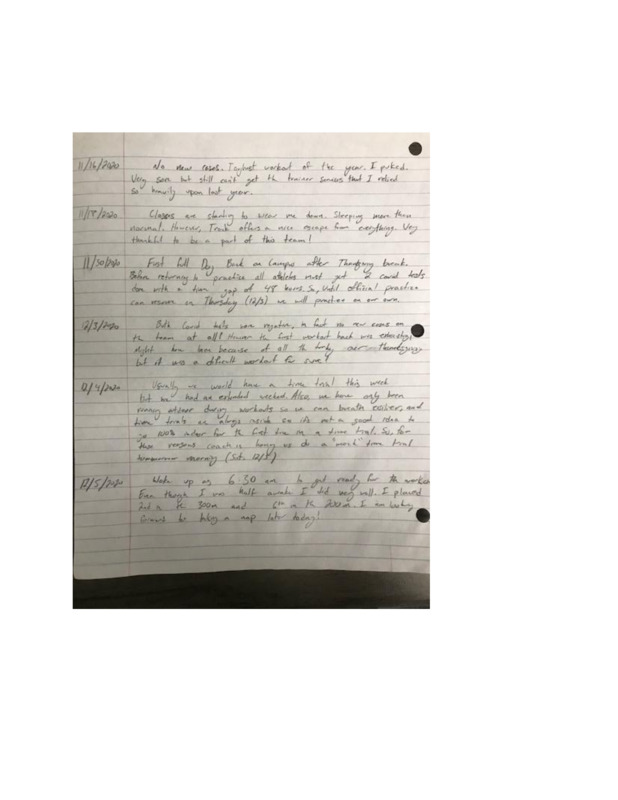 11/16/2020 No new cases. Toughest workout of the year. I puked.
Very sore but still can't get the trainer services that I relied
so heavily upon last year.
11/18/2020 Classes are starting to wear me down. Sleeping more than
normal. However, Track offers a nice escape from everything. Very
thankful to be a part of this team!
11/30/2020 First full Day Back on Campus after Thanksgiving break.
Before returning to practice all athletes must get 2 covid tests
done with a time gap of 48 hours. So, Until official practice
can resume on Thursday (12/3) we will practice on our own.
12/3/2020 Both Covid tests were negative, in fact no new cases on
the team at all! However the first workout back was exhausting
Might have been because of all the turkey over thanksgiving
but it was a difficult workout for sure!
12/4/2020 Usually we would have a time trial this week
but we had an extended weekend. Also, we have only been
running outdoor during workouts so we can breath easier, and
time trials are always inside so it's not a good idea to
go 100% indoor for the first time in a time trial. So, for
these reasons coach is having us do a "mock" time trial
tomorrow morning (Sat. 12/5)
12/5/2020 Woke up at 6:30 am to get ready for the workout
Even though I was half awake I did very well. I placed
2nd in the 300m and 6th in the 200m. I am looking
forward to taking a nap later today!